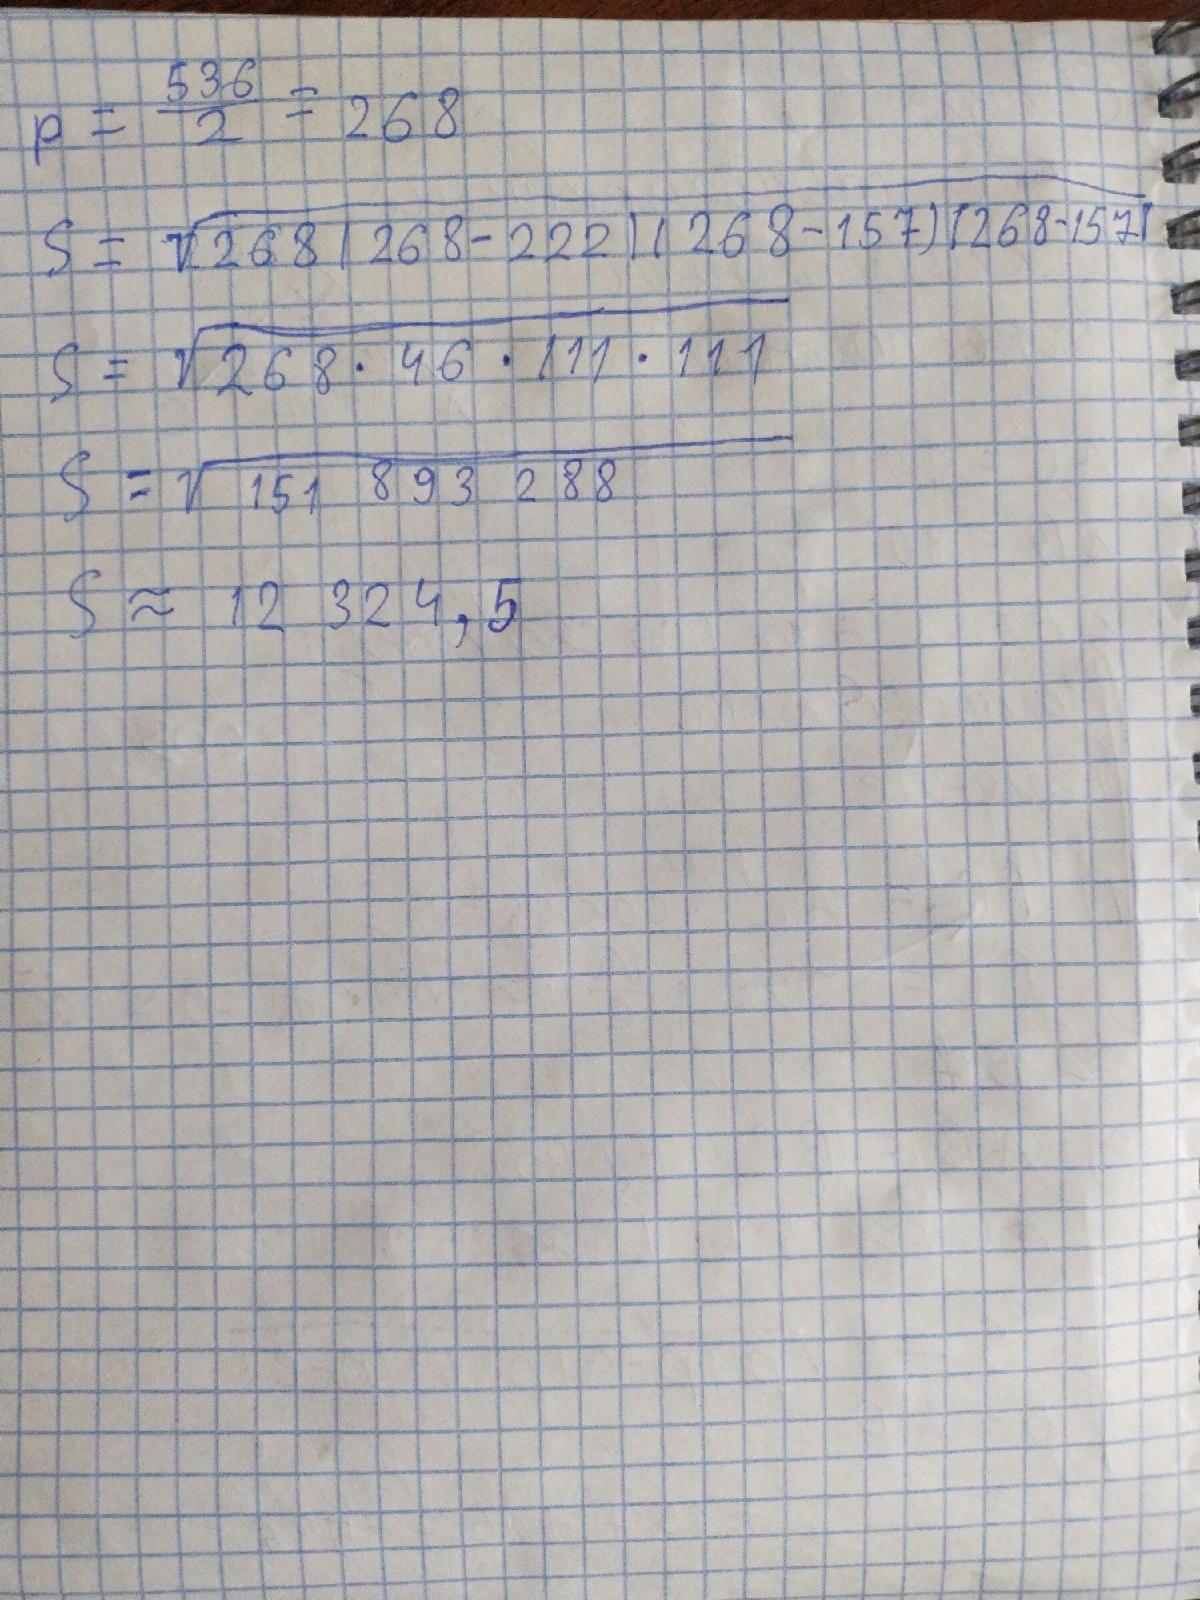 p = 536/2 = 268
S = √268(268-222)(268-157)(268-157)
S = √268·46·111·111
S = √151 893 288
S ≈ 12 324,5